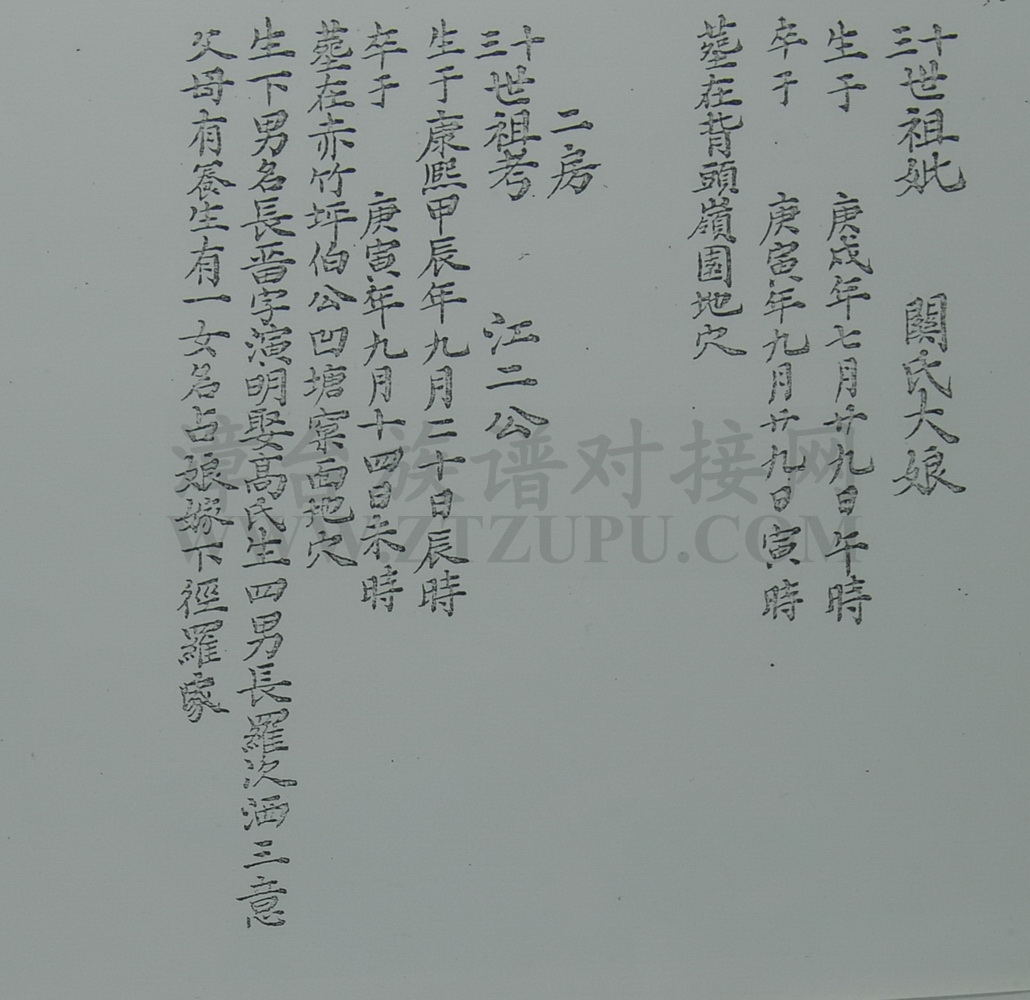 十三世祖妣 関氏大娘
生于 庚戍年七月廿九日午時
卒于 庚寅年九月廿九日寅時
塟在背頭嶺園地穴
二房
十三世祖考 江二公
生于康熙甲辰年九月二十日辰時
卒于 庚寅年九月十四日未時
塟在赤竹坪伯公凹塘窝面地穴
生下男名長晋字演明娶高氏生四男長羅次洒三意
父母有养生有一女名占娘嫁下徑羅家
漳台族谱对接网
WWW.ZTZUPU.COM